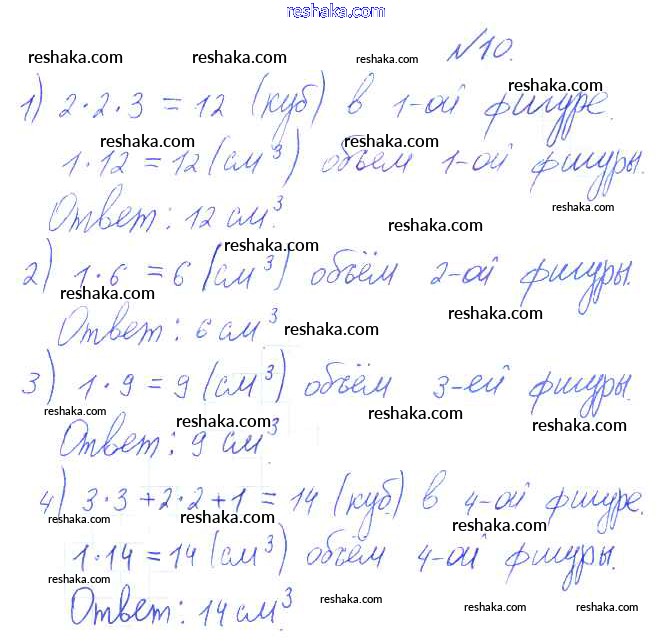 reshaka.com
№10.
reshaka.com reshaka.com reshaka.com
1) 2·2·3 = 12 (куб) в 1-ой фигуре.
reshaka.com
reshaka.com reshaka.com
1·12 = 12 (см³) объём 1-ой фигуры.
Ответ: 12 см³.
reshaka.com
reshaka.com
reshaka.com
2) 1·6 = 6 (см³) объём 2-ой фигуры.
reshaka.com
reshaka.com
Ответ: 6 см³.
reshaka.com
3) 1·9 = 9 (см³) объём 3-ей фигуры.
reshaka.com reshaka.com reshaka.com
reshaka.com
Ответ: 9 см³
4) 3·3+2·2+1 = 14 (куб.) в 4-ой фигуре.
reshaka.com reshaka.com reshaka.com
1·14 = 14 (см³) объём 4-ой фигуры.
reshaka.com
Ответ: 14 см³
reshaka.com reshaka.com reshaka.com